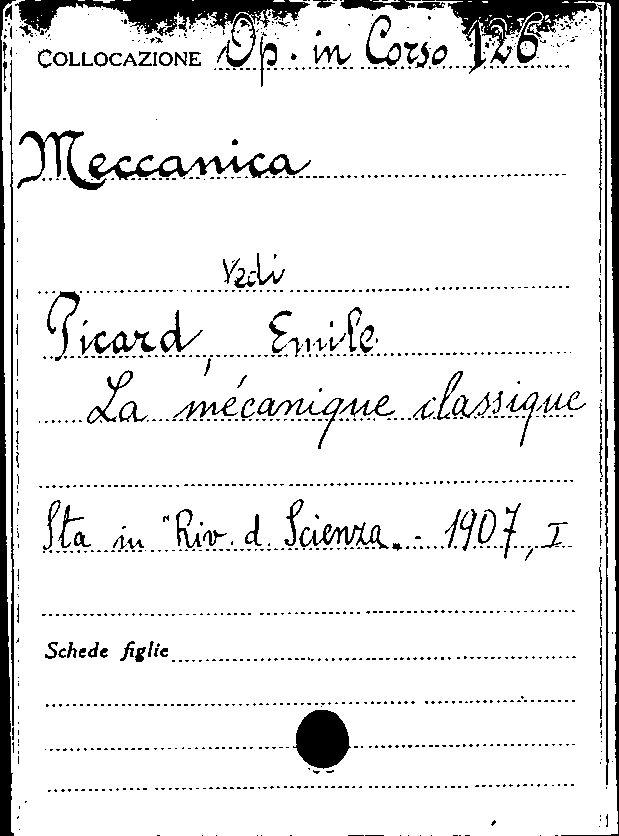 COLLOCAZIONE Op. in Corso 126
Meccanica
Vedi
Picard, Emile
La mécanique classique
Sta in "Riv. d. Scienza„ - 1907, I
Schede figlie